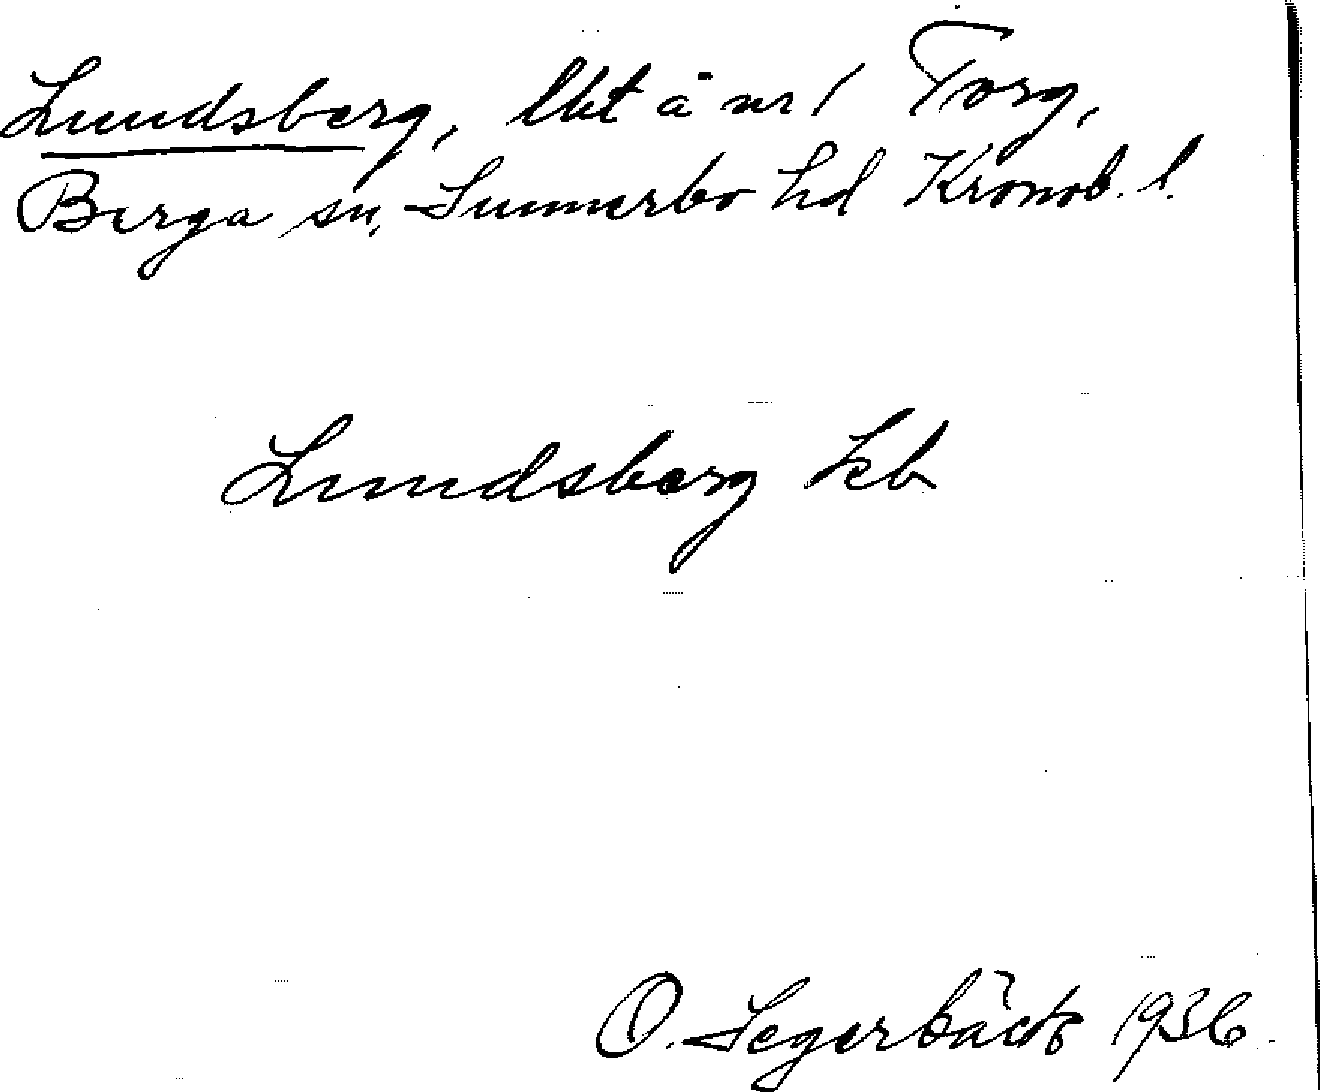 Lundsberg, lht å nr 1 Torg,
Berga sn, Sunnerbo hd Kronob. l.
Lundsberg kb
O. Segerbäck 1936.